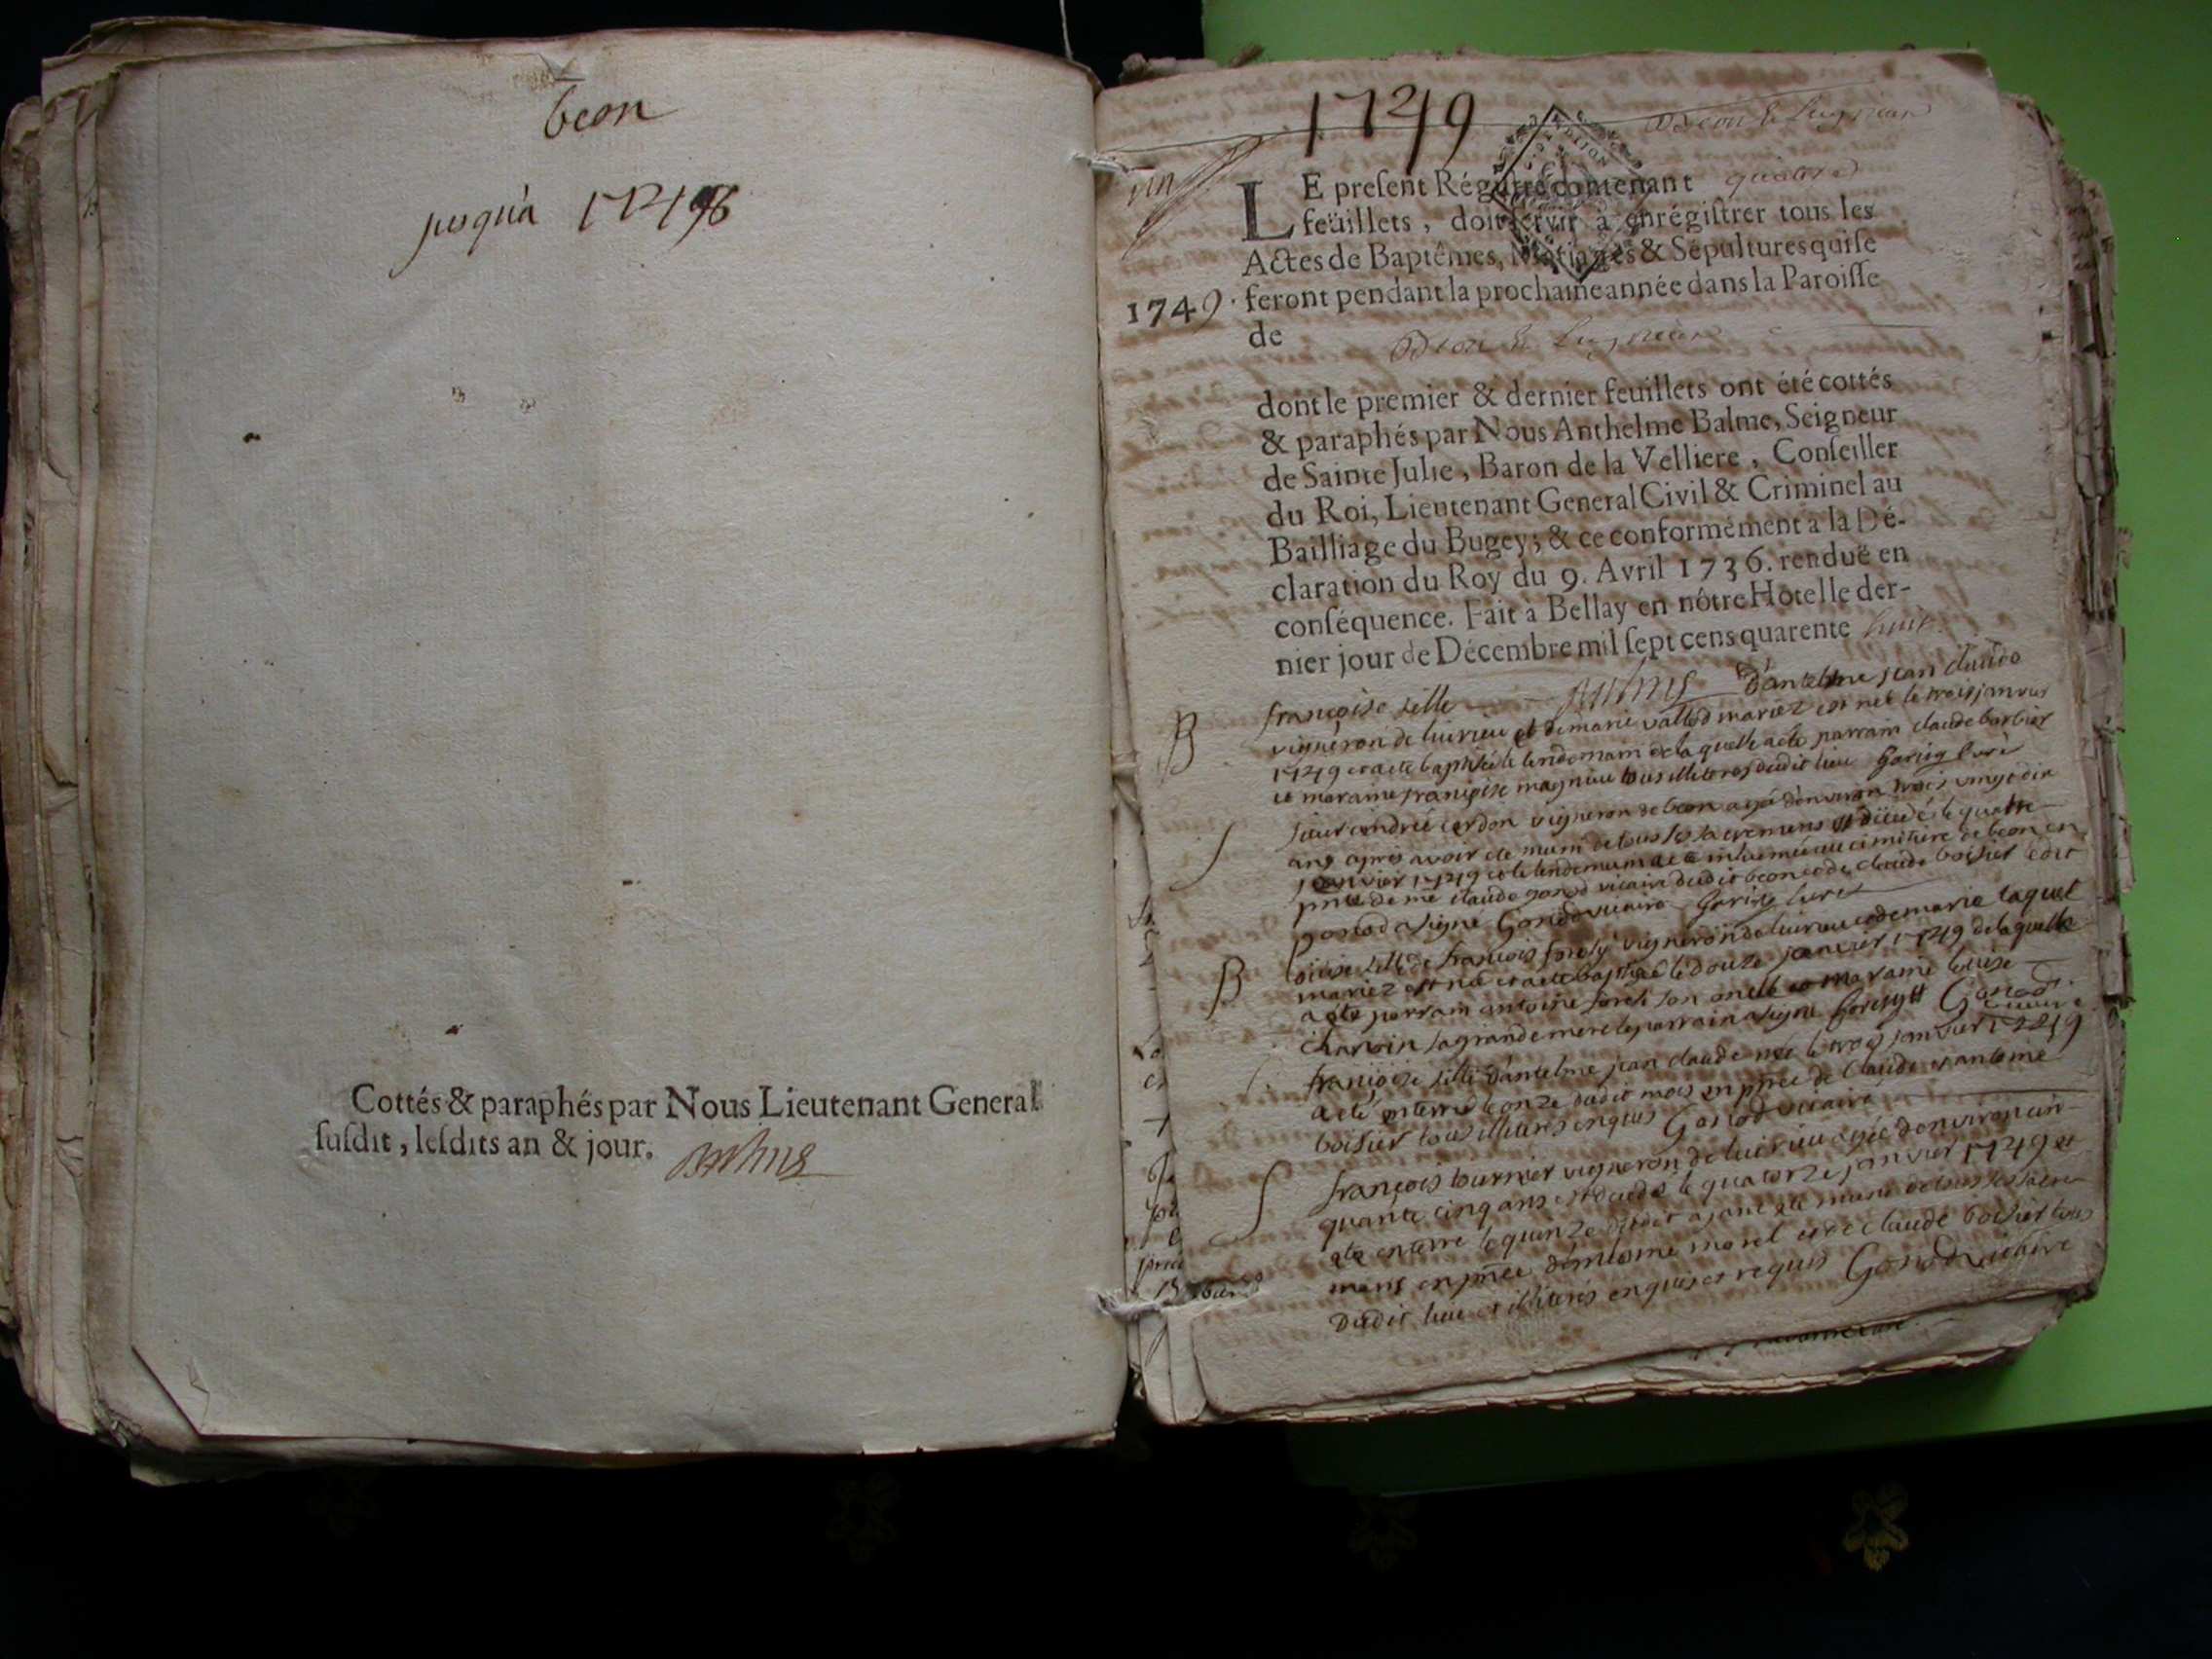 beon
jusqu'à 1748
Cottés & paraphés par Nous Lieutenant General
susdit, lesdits an & jour.
1749
un
LE present Régistre contenant quatre
feüillets, doit servir à enrégistrer tous les
Actes de Baptêmes, Mariages & Sépultures qui se
1749. feront pendant la prochaine année dans la Paroisse
de Beon &
dont le premier & dernier feuillets ont été cottés
& paraphés par Nous Anthelme Balme, Seigneur
de Sainte Julie, Baron de la Velliere, Conseiller
du Roi, Lieutenant General Civil & Criminel au
Bailliage du Bugey; & ce conformément à la Dé-
claration du Roy du 9. Avril 1736. renduë en
conséquence. Fait à Bellay en nôtre Hôtel le der-
nier jour de Décembre mil sept cens quarente huit.
B françoise fille D'antelme jean claude
vigneron de luirieu et de marie vallod mariez est neè le trois janvier
1749 et a ete baptisée le lendemain de laquelle a ete parrain claude barbier
et maraine françoise magnieu tous illiteres dudit lieu
S sieur andré cordon vigneron de beon agé d'environ trois vingt dix
ans apres avoir ete muni de tous les sacremens est décédé le quatre
janvier 1749 et le lendemain a ete inhumé au cimitiere de beon en
pnce de me claude gonod vicaire dudit beon et de claude boisier ledit
gonod a signé Gonod vicaire
B fille de françois forest vigneron de luirieu et de marie taquet
mariez est née et a ete baptisée le douze janvier 1749 de laquelle
a ete parrain antoine forest son oncle et maraine louise
charvin sa grande mere le parrain a signé Gonod vicaire
françoise fille d'antelme jean claude née le trois janvier 1749
a eté enterrée le onze dudit mois en pnce de claude et antoine
boisier tous illiteres enquis Gonod vicaire
S françois tournier vigneron de luirieu agé d'environ cin-
quante cinq ans est décédé le quatorze janvier 1749 et
ete enterré le quinze dudit ayant ete muni de tous les sacre-
mens en pnce d'antoine morel et de claude boisier tous
dudit lieu et illiterés enquis et requis Gonod vicaire